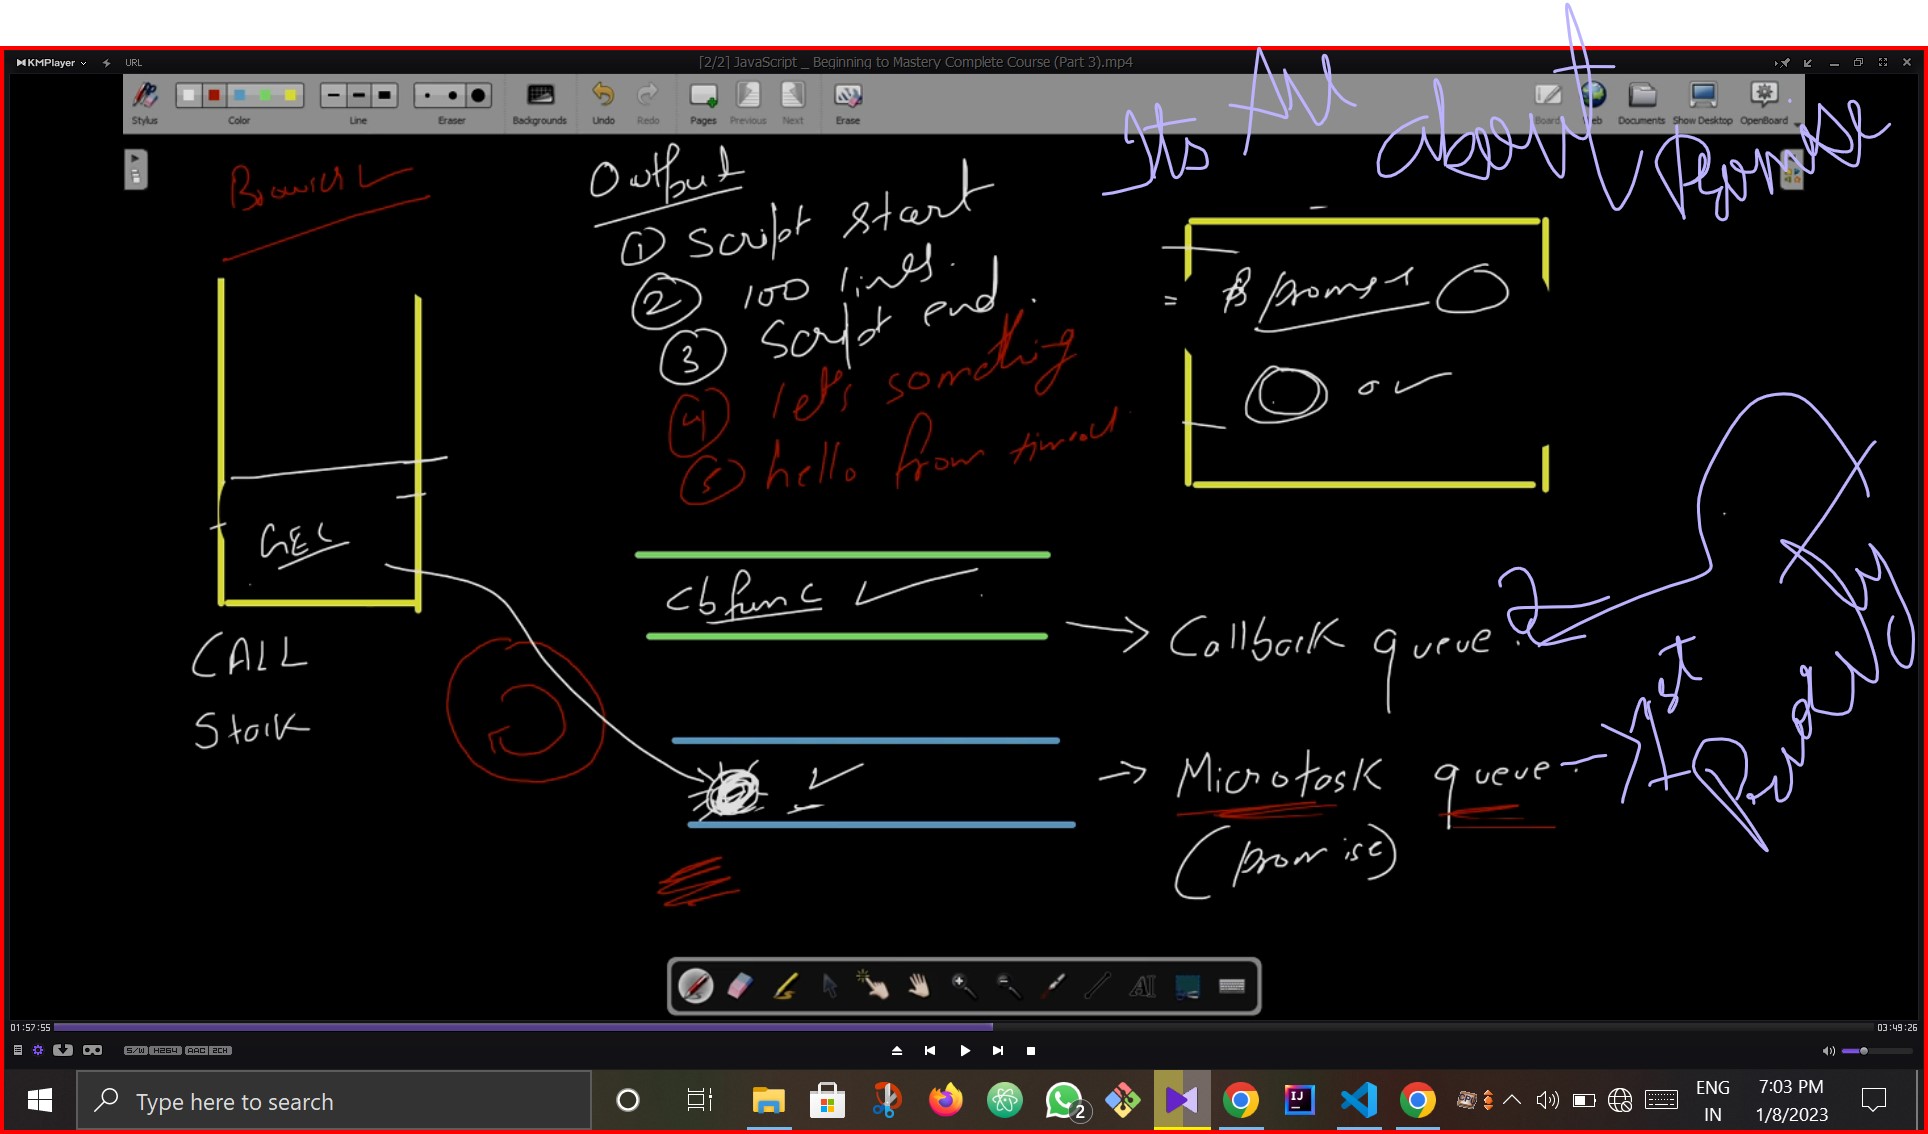 KMPlayer
URL
[2/2] JavaScript _ Beginning to Mastery Complete Course (Part 3).mp4
Stylus
Color
Line
Eraser
Backgrounds
Undo
Redo
Pages
Previous
Next
Erase
Board
Web
Documents
Show Desktop
OpenBoard
Its All about Promise
Browser
Output
① Script start
② 100 lines.
③ Script end.
④ lets something
⑤ hello from timeout
GEC
CALL
Stack
cb func
→ Callback queue. 2
→ Microtask queue. → 1st
(promise)
Priority
01:57:55
03:49:26
S/W H264 AAC 2CH
Type here to search
2
IJ
ENG
IN
7:03 PM
1/8/2023